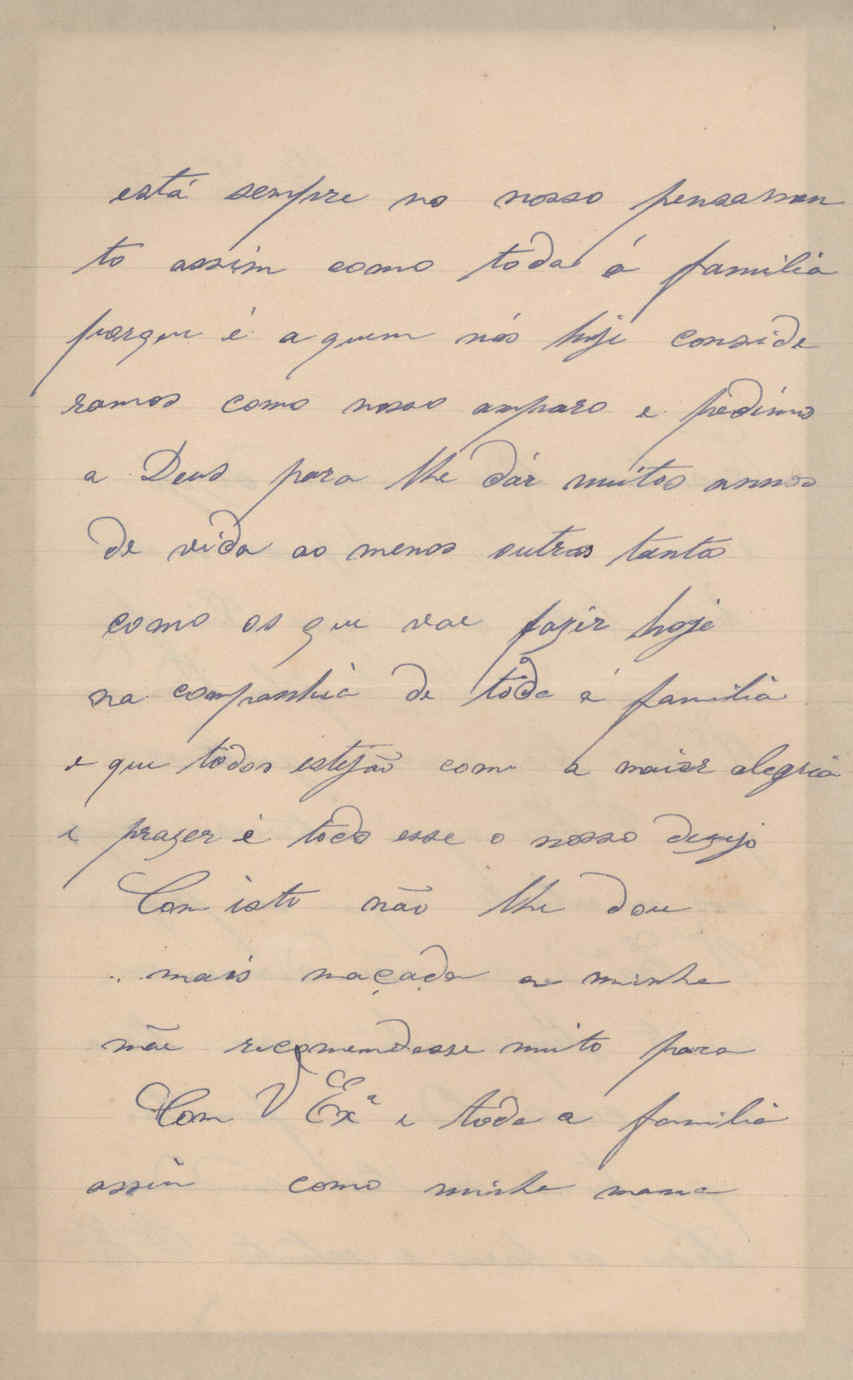 está sempre no nosso pensamen
to assim como toda á familia
porque é a quem nós hoje conside
ramos como nosso amparo e pedimos
a Deus para lhe dár muitos annos
de vida ao menos outros tantos
como os que vae fazer hoje
na companhia de toda á familia
e que todos estejão com a maior alegria
e prazer é todo esse o nosso dezejo
Com isto não lhe dou
mais maçada a minha
mãe recomendasse muito para
Com V Exª e toda a familia
assim como minha mana